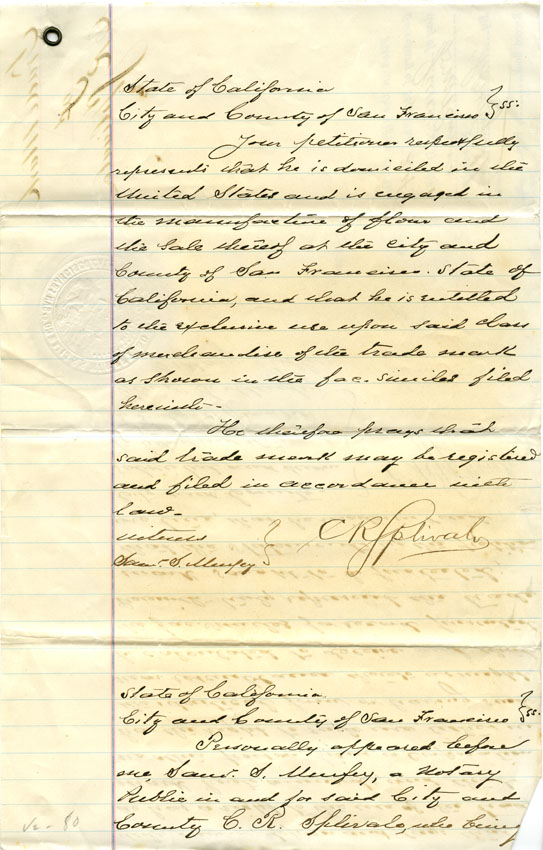 State of California
City and County of San Francisco } ss:
Your petitioner respectfully
represents that he is domiciled in the
United States and is engaged in
the manufacture of flour and
the sale thereof at the City and
County of San Francisco. State of
California, and that he is entitled
to the exclusive use upon said class
of merchandise of the trade mark
as shown in the fac-similes filed
herewith-
He therefore prays that
said trade mark may be registered
and filed in accordance with
law-
witness
Saml. S. Murfey } C R Splivalo
State of California
City and County of San Francisco } ss.
Personally appeared before
me, Saml. S. Murfey, a Notary
Public in and for said City and
County C. R. Splivalo, who being